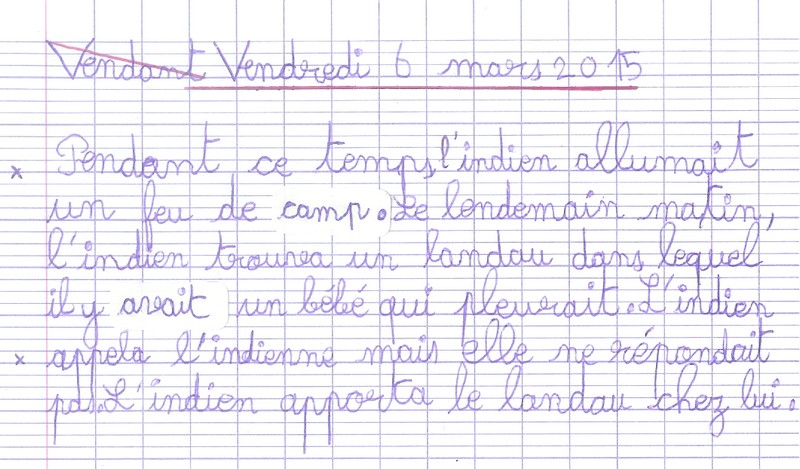 Vendant Vendredi 6 mars 2015
x Pendant ce temps, l'indien allumait
un feu de camp. Le lendemain matin,
l'indien trouva un landau dans lequel
il y avait un bébé qui pleurait. L'indien
x appela l'indienne mais elle ne répondait
pas. L'indien apporta le landau chez lui.